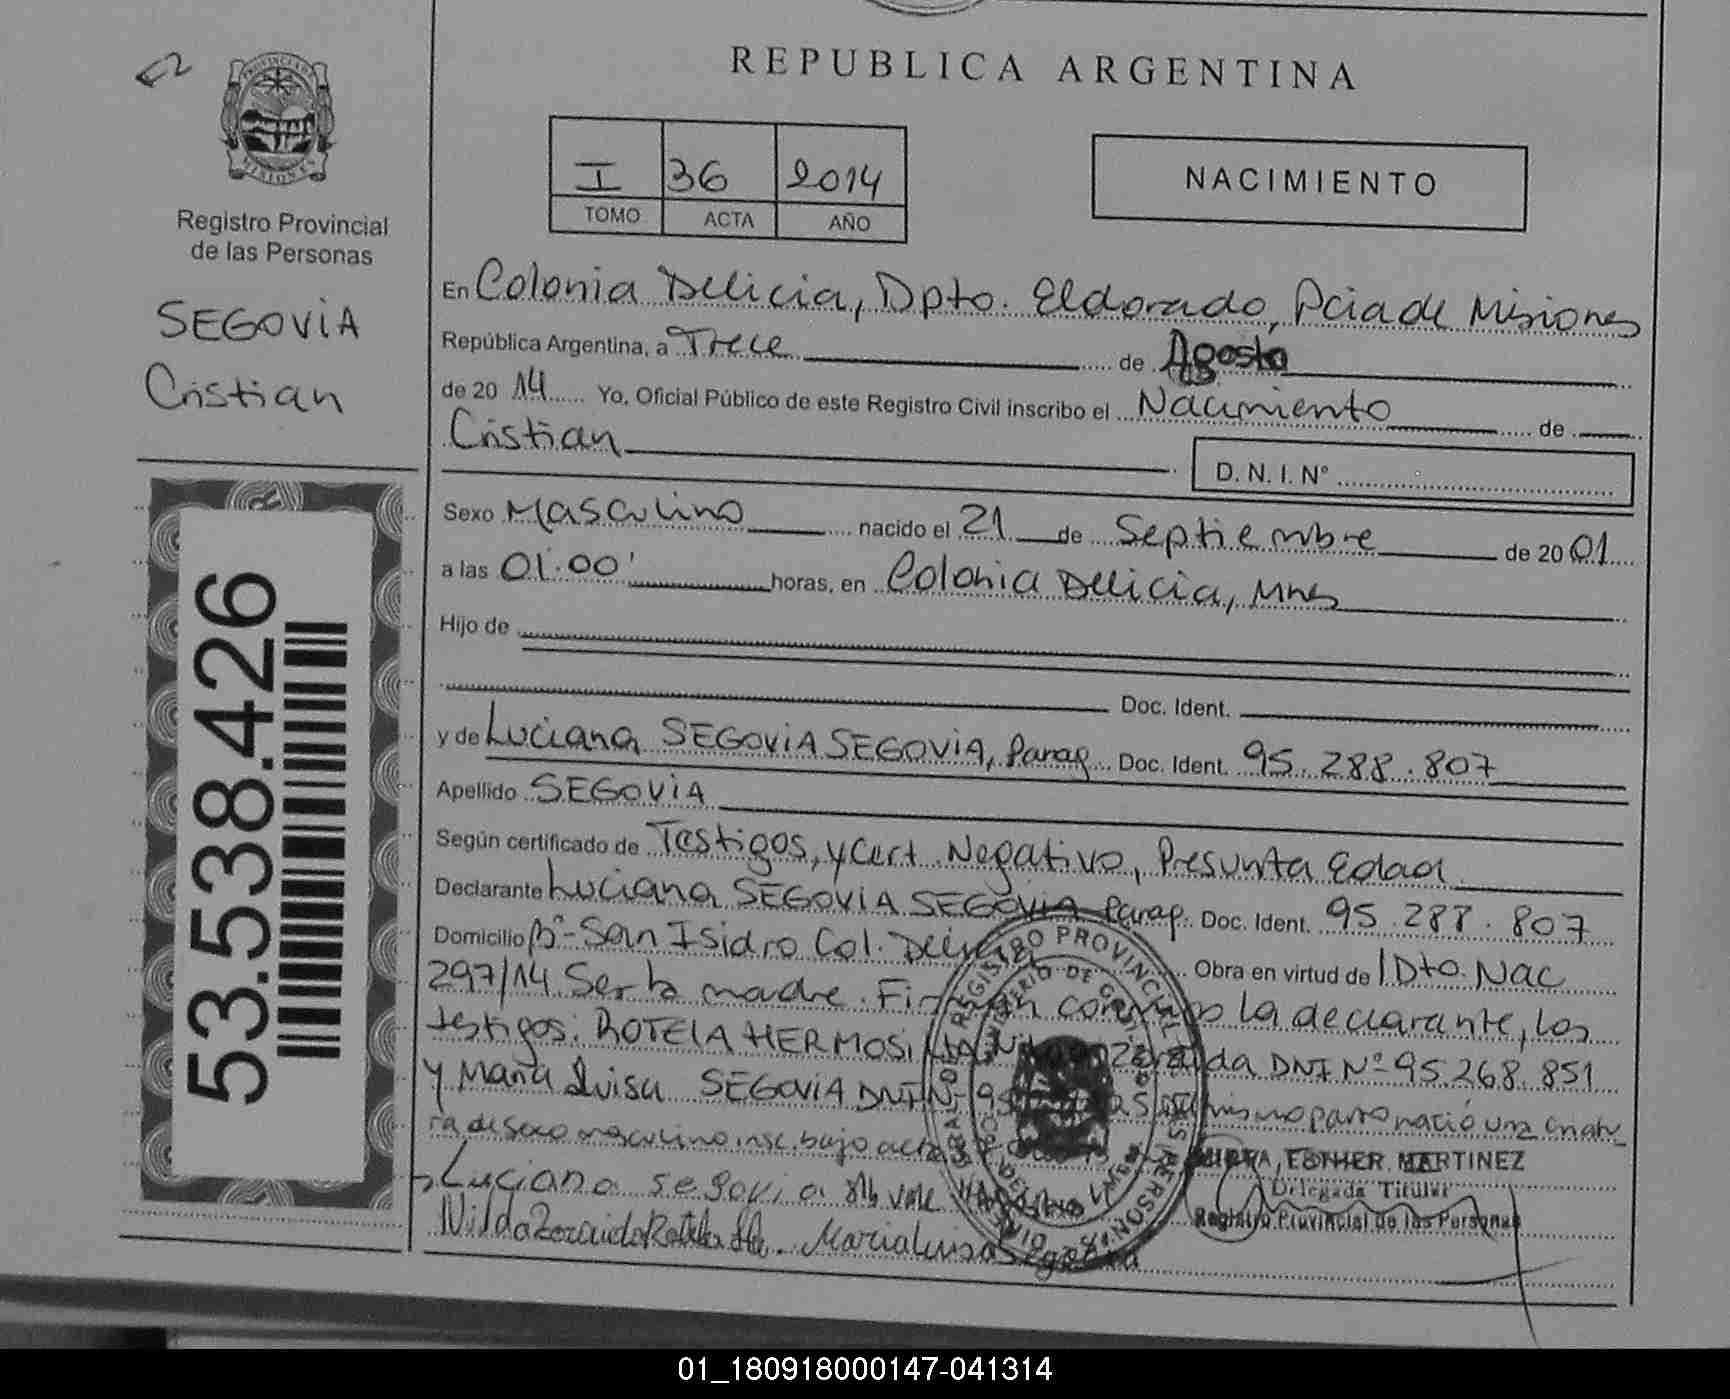 REPUBLICA ARGENTINA
PROVINCIA DE
MISIONES
Registro Provincial
de las Personas
I 36 2014
TOMO ACTA AÑO
NACIMIENTO
SEGOVIA
Cristian
53.538.426
En Colonia Delicia, Dpto. Eldorado, Pcia de Misiones
República Argentina, a Trece de Agosto
de 20 14 Yo, Oficial Público de este Registro Civil inscribo el Nacimiento de
Cristian
D. N. I. Nº
Sexo Masculino nacido el 21 de Septiembre de 20 01
a las 01:00' horas, en Colonia Delicia, Mnes
Hijo de
Doc. Ident.
y de Luciana SEGOVIA SEGOVIA, Parag Doc. Ident. 95.288.807
Apellido SEGOVIA
Según certificado de Testigos, y Cert. Negativo, Presunta Edad
Declarante Luciana SEGOVIA SEGOVIA Parag. Doc. Ident. 95.288.807
Domicilio Bº San Isidro Col. Obra en virtud de Dto. Nac
297/14 Ser la madre. la declarante, los
testigos. ROTELA HERMOSILLA DNI Nº 95.268.851
y Maria Luisa SEGOVIA DNI Nº mismo parto nació una criatu
ra de sexo masculino insc. bajo acta
Luciana segovia vale
MIRTA ESTHER MARTINEZ
Delegada Titular
Registro Provincial de las Personas
Maria Luisa Segovia
REGISTRO PROVINCIAL DE LAS PERSONAS
MINISTERIO DE
01_180918000147-041314